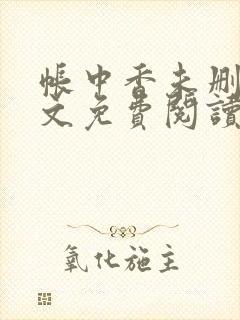 帳中香未刪
文免費閱讀
氧化施主